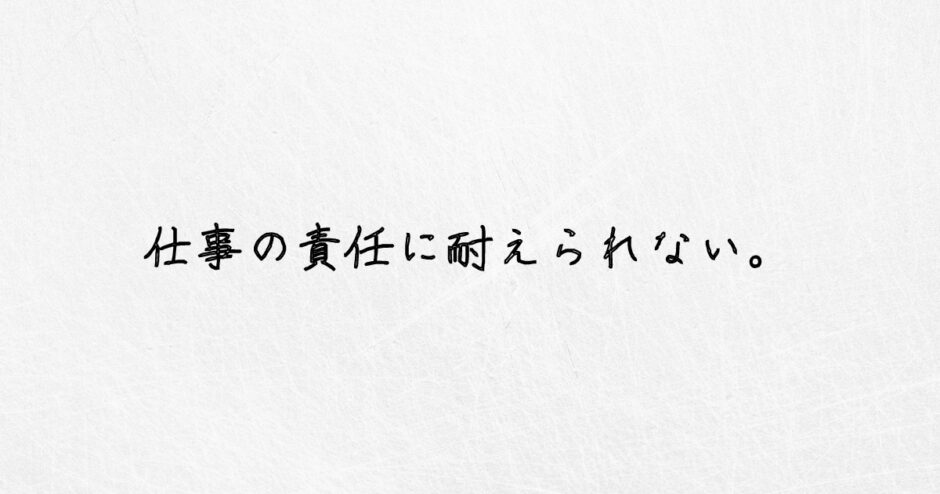 仕事の責任に耐えられない。